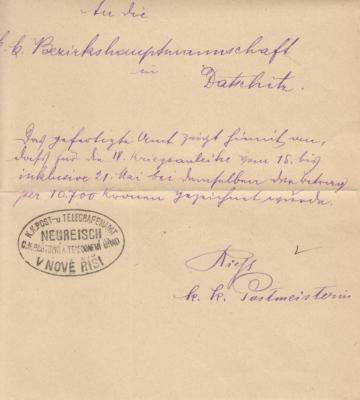 An die
k. k. Bezirkshauptmannschaft
in
Datschitz.
Das gefertigte Amt zeigt hiemit an,
daß für die IV. Kriegsanleihe vom 15. bis
inklusive 21. Mai bei demselben der Betrag
per 10.700 Kronen gezeichnet wurde.
K.K. POST- u. TELEGRAFENAMT
NEUREISCH
C.K. POŠTOVNÍ A TELEGRAFNÍ ÚŘAD
V NOVÉ ŘÍŠI
k. k. Postmeisterin